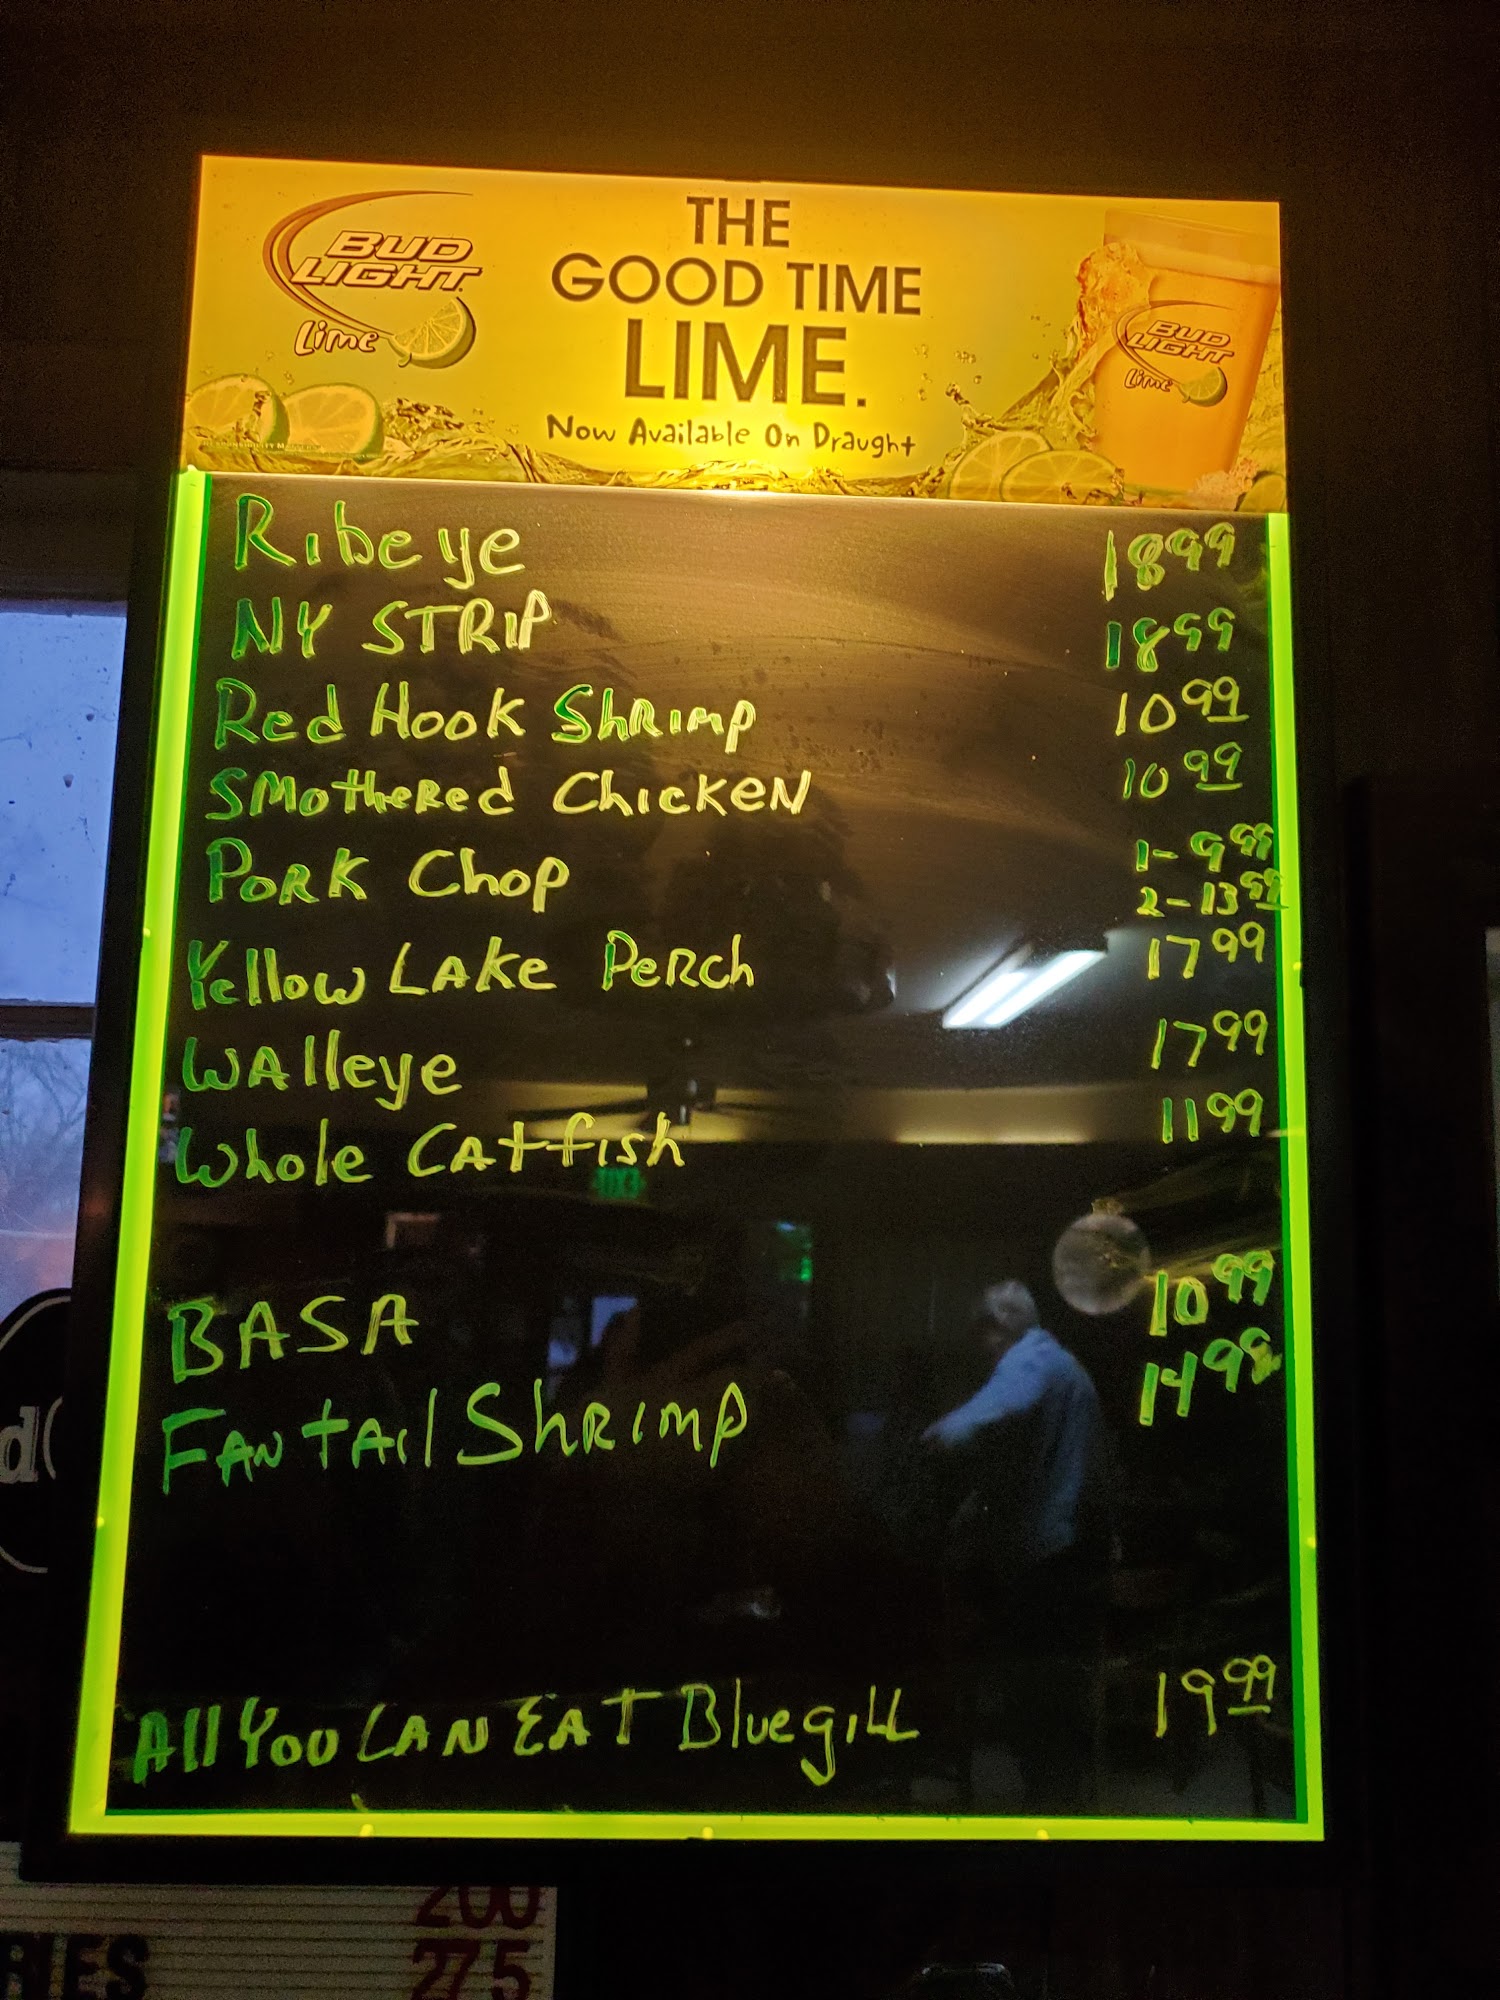 BUD LIGHT Lime
THE
GOOD TIME
LIME.
Now Available On Draught
BUD LIGHT Lime
Ribeye 18 99
NY STRIP 18 99
Red Hook Shrimp 10 99
SMotheRed ChicKeN 10 99
PORK Chop 1- 9 99
2- 13 99
Yellow LAKe PeRch 17 99
WAlleye 17 99
Whole CAtfish 11 99
BASA 10 99
FANtAil ShRImp 14 99
All You CAN EAT Bluegill 19 99
200
RIES 275